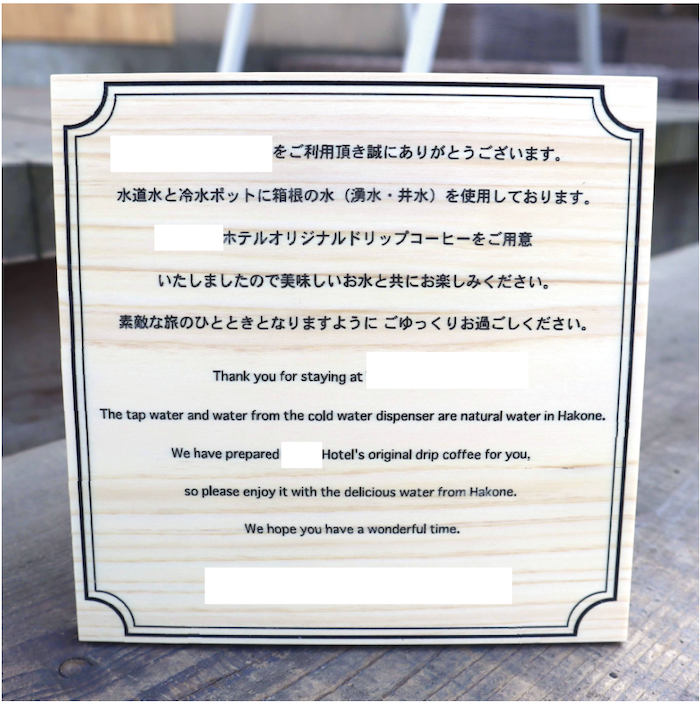 をご利用頂き誠にありがとうございます。
水道水と冷水ポットに箱根の水（湧水・井水）を使用しております。
ホテルオリジナルドリップコーヒーをご用意
いたしましたので美味しいお水と共にお楽しみください。
素敵な旅のひとときとなりますように ごゆっくりお過ごしください。
Thank you for staying at
The tap water and water from the cold water dispenser are natural water in Hakone.
We have prepared Hotel's original drip coffee for you,
so please enjoy it with the delicious water from Hakone.
We hope you have a wonderful time.